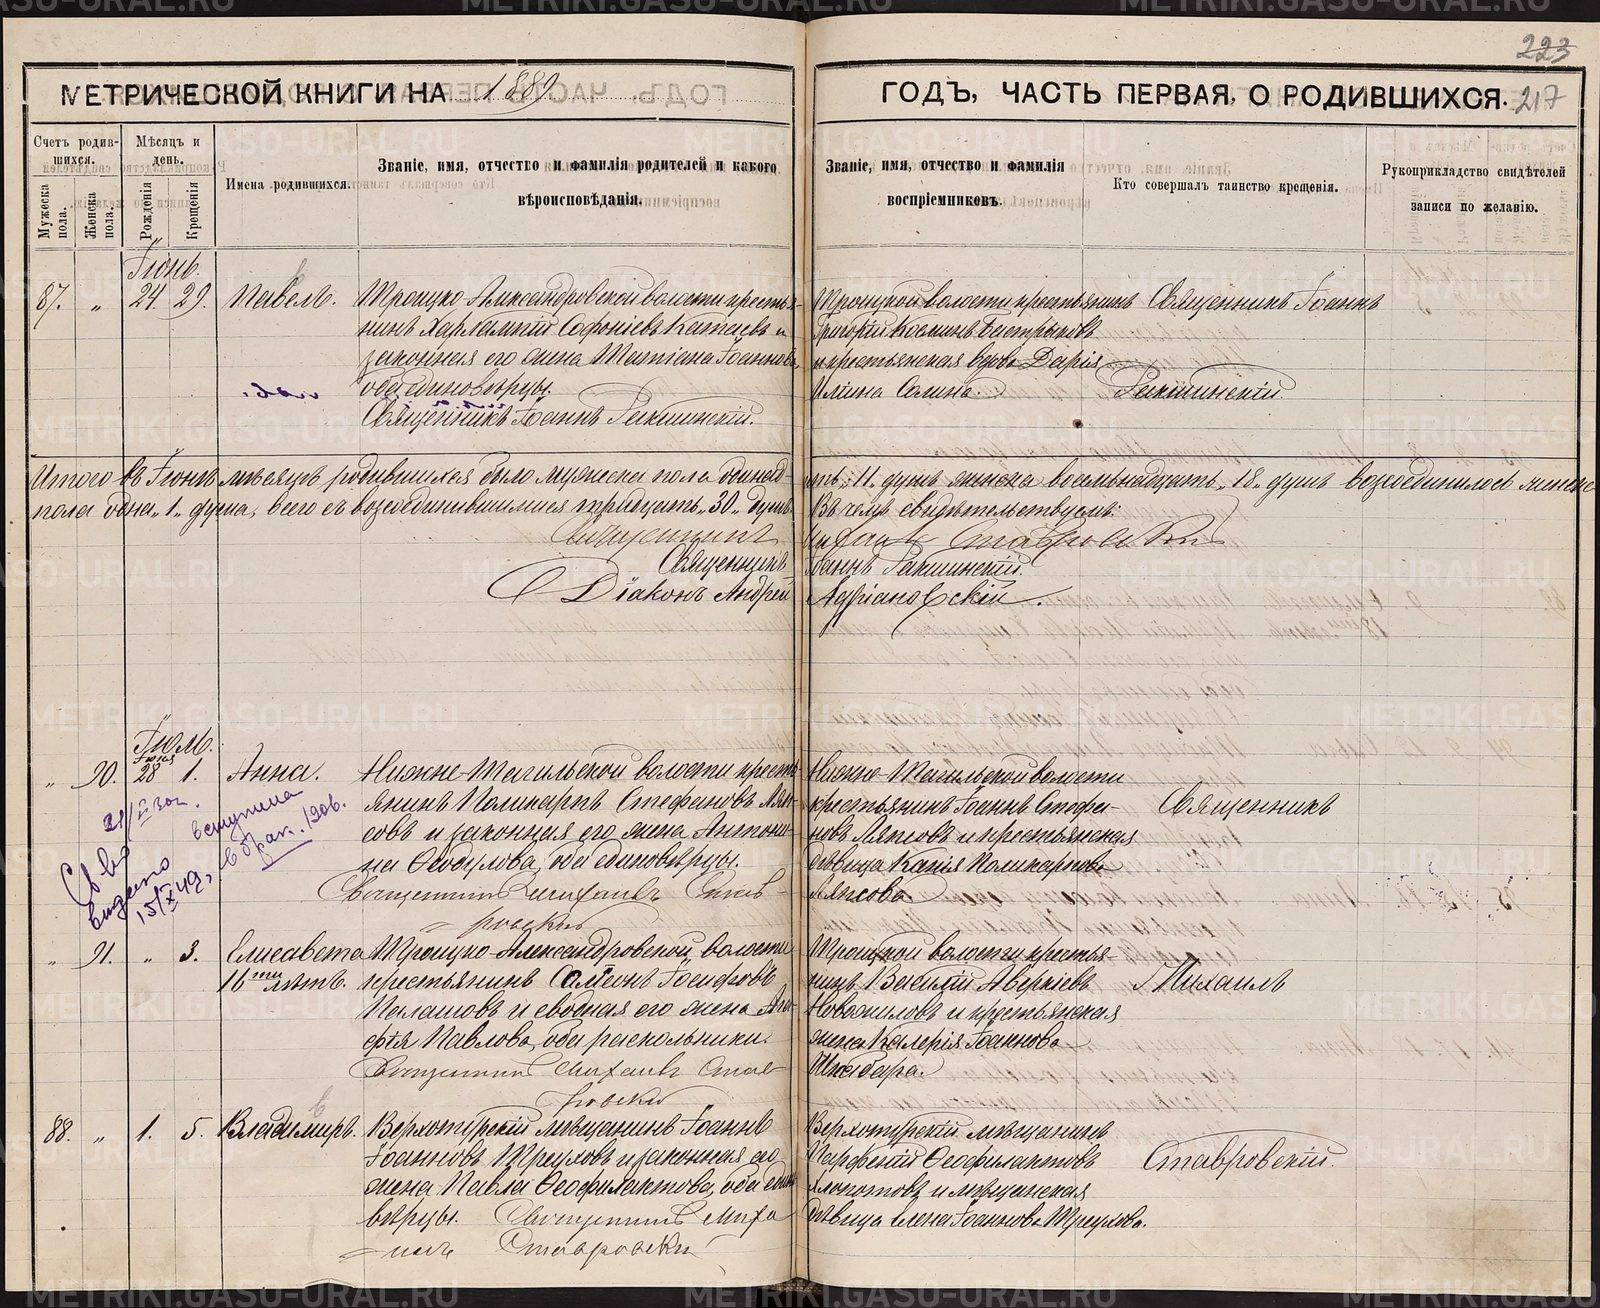 223
МЕТРИЧЕСКОЙ КНИГИ НА 1889
ГОДЪ, ЧАСТЬ ПЕРВАЯ, О РОДИВШИХСЯ. 217
Счетъ родив-
шихся.
Мужеска пола.
Женска пола.
Мѣсяцъ и
день.
Рожденія
Крещенія
Имена родившихся.
Званіе, имя, отчество и фамилія родителей и какого
вѣроисповѣданія.
Званіе, имя, отчество и фамилія
воспріемниковъ.
Кто совершалъ таинство крещенія.
Рукоприкладство свидѣтелей
записи по желанію.
Іюнь.
87. „ 24. 29. Павелъ.
Троицко-Александровской волости крестья-
нинъ Харлампій Софоніевъ и
законная его жена Татіана Іоаннова,
оба единовѣрцы.
Священникъ Іоаннъ Ракшинскій.
Троицкой волости крестьянинъ
Григорій Косминъ
и крестьянская вдова Дарія
Илiина
Священникъ Іоаннъ
Ракшинскій
Итого въ Іюнѣ мѣсяцѣ родившихся было мужеска пола одинад-
цать „11„ душъ женска восемьнадцать „18„ душъ возсоединилось женска
пола одна „1„ душа, всего съ возсоединившимися тридцать „30„ душъ.
Въ чемъ свидѣтельствуемъ:
Священникъ Михаилъ Ставровскій
Священникъ Іоаннъ Ракшинскій.
Діаконъ Андрей Адріановскій.
Іюль.
„ 90. Іюня 28 1. Анна.
Нижне-Тагильской волости кресть-
янинъ Поликарпъ Стефановъ Ляп-
совъ и законная его жена Антони-
на Ѳеодулова, оба единовѣрцы.
Священникъ Михаилъ Став-
ровскій
Нижне-Тагильской волости
крестьянинъ Іоаннъ Стефа-
новъ Ляпсовъ и крестьянская
дѣвица Поликарпова
Ляпсова
Священникъ
вступила
въ брак. 1906.
15/X 49,
„ 91. „ 3. Елисавета
16ти лѣтъ.
Троицко-Александровской волости
крестьянинъ Симеонъ Іосифовъ
и сводная его жена
Павлова, оба раскольники.
Священникъ Михаилъ Став-
ровскій
Троицкой волости крестья-
нинъ Василій Аверкіевъ
Новожиловъ и крестьянская
жена Валерія Іоаннова
Михаилъ
88. „ 1. 5. Владимиръ.
Верхотурскій мѣщанинъ Іоаннъ
Іоанновъ Треуховъ и законная его
жена Павла Ѳеофилактова, оба едино-
вѣрцы. Священникъ Миха
илъ Ставровскій
Верхотурскій мѣщанинъ
Парфеній Ѳеофилактовъ
Хлопотовъ и мѣщанская
дѣвица Елена Іоаннова Треухова.
Ставровскій.
METRIKI.GASO-URAL.RU